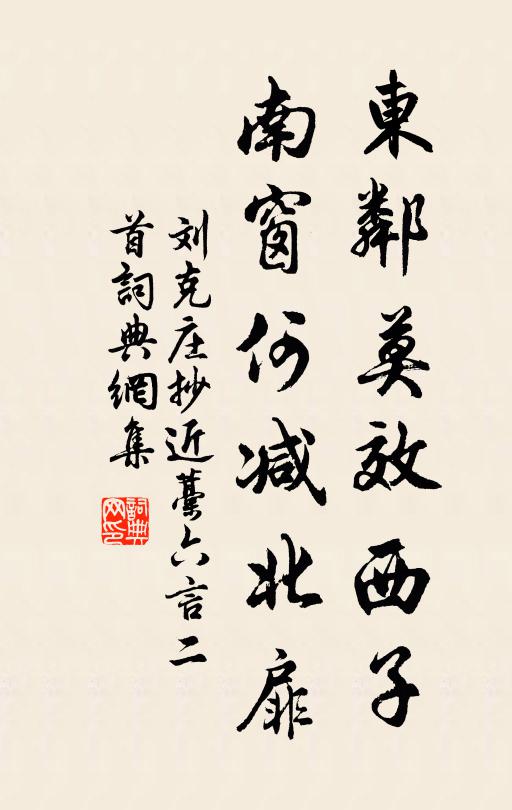 東鄰莫效西子
南窗何减北扉
刘克庄抄近藁六言二
首詞典網集
詞典网印